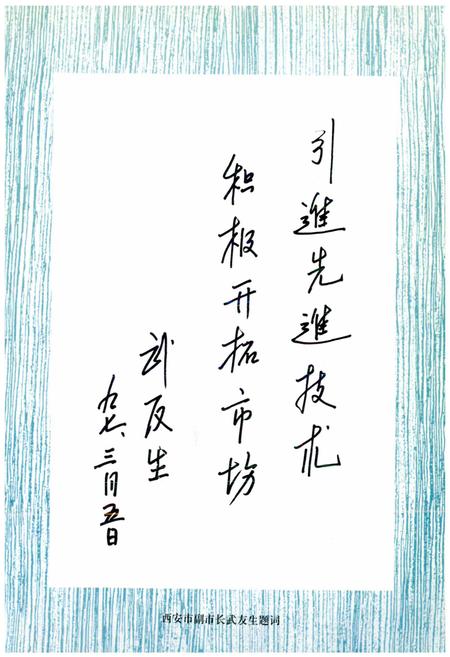 引進先進技术
积极开拓市场
武友生
九七、三月五日
西安市副市长武友生题词